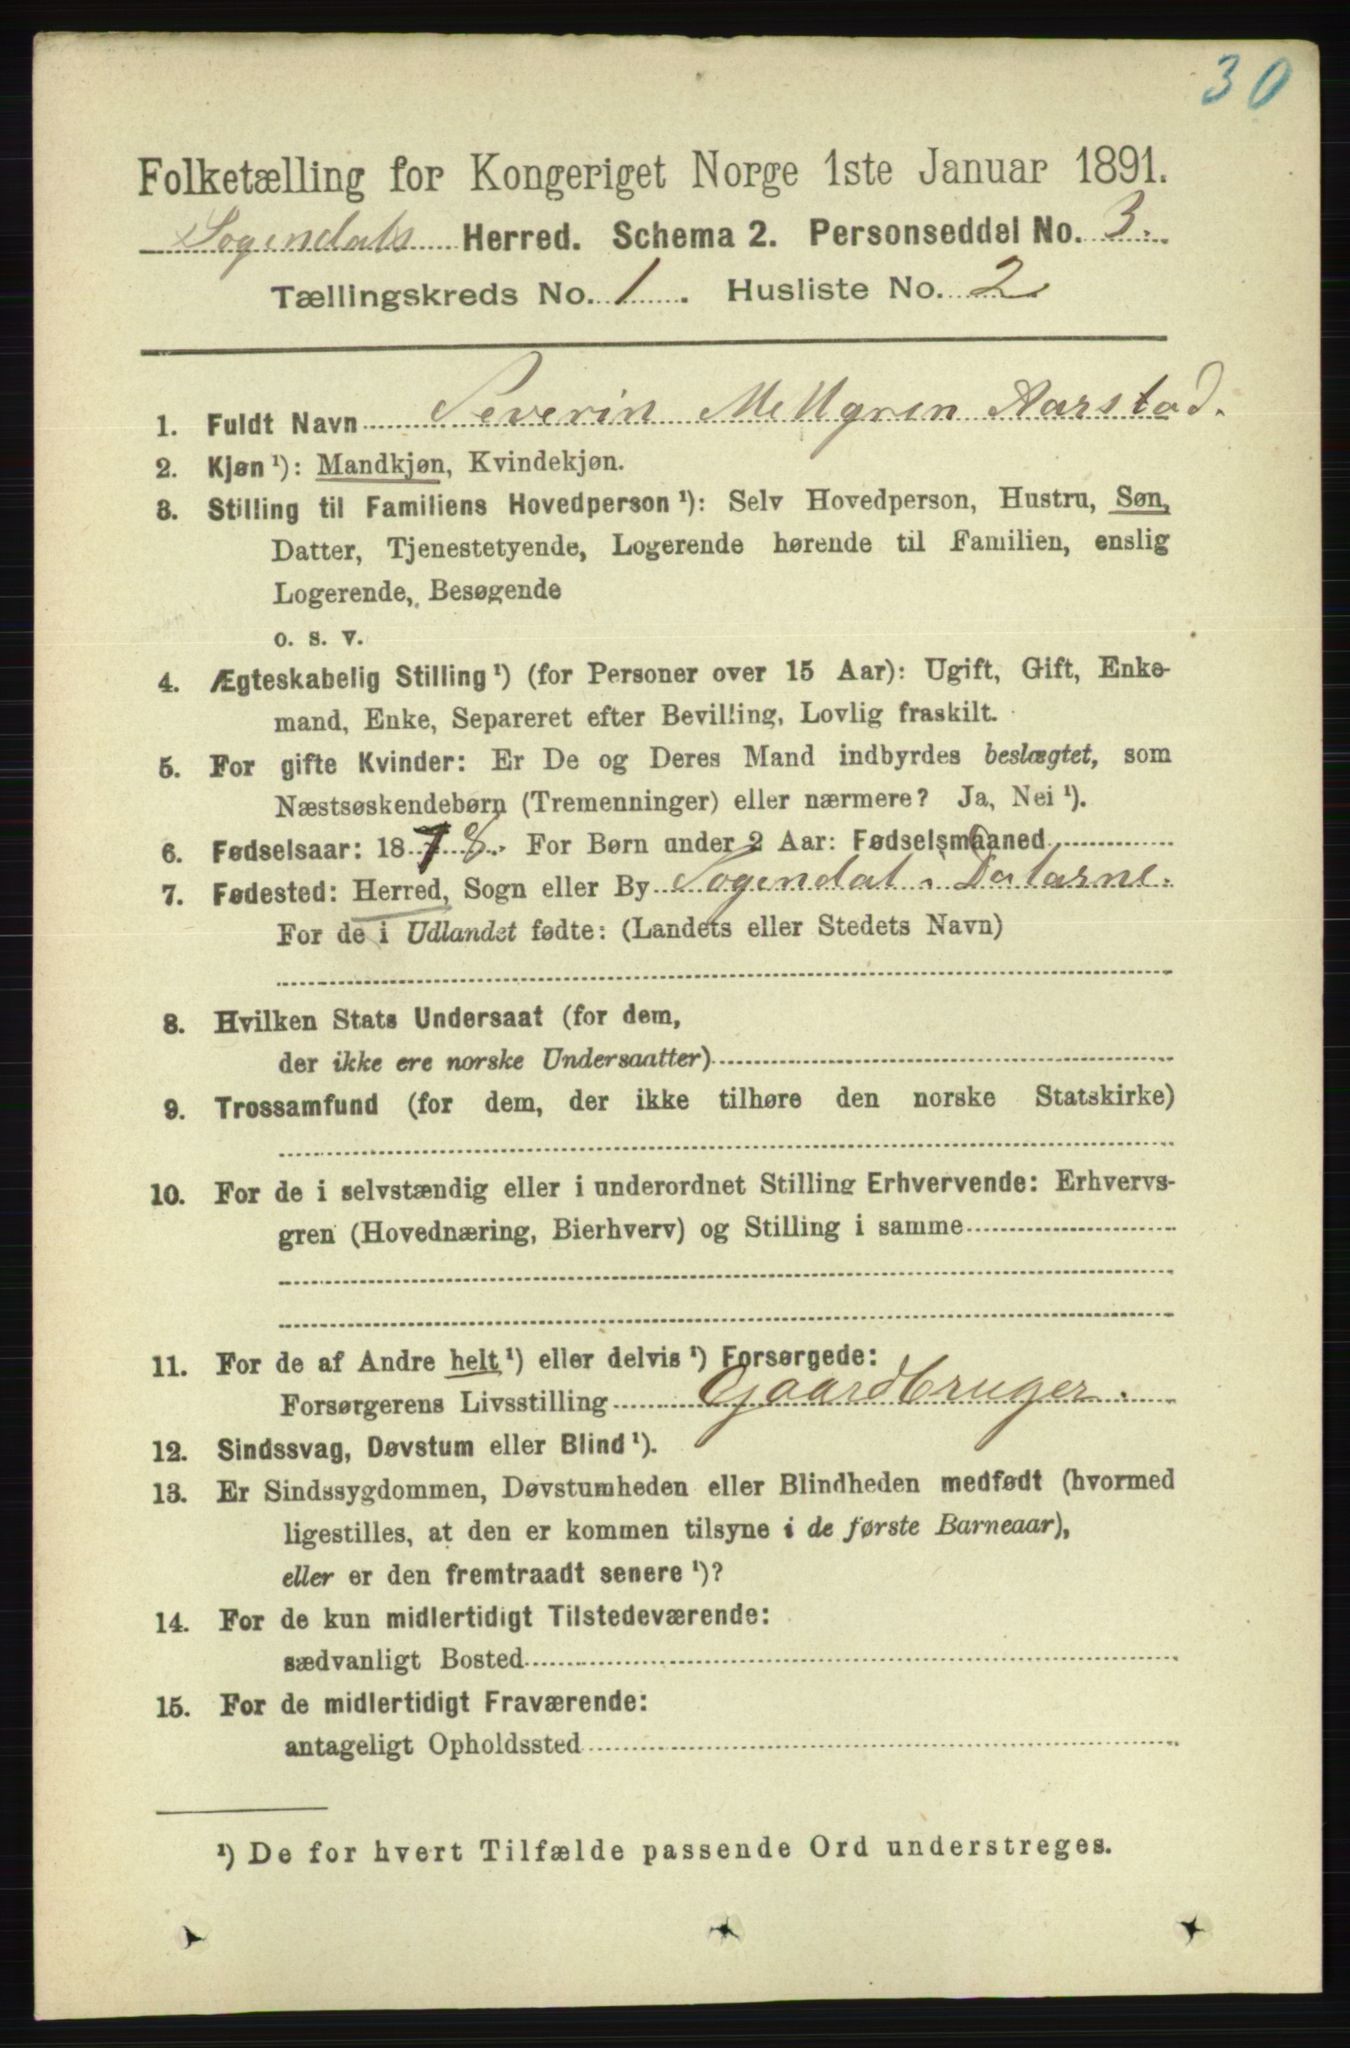 30
Folketælling for Kongeriget Norge 1ste Januar 1891.
Sogendals Herred. Schema 2. Personseddel No. 3.
Tællingskreds No. 1. Husliste No. 2
1. Fuldt Navn Severin Mellgren Aarstad.
2. Kjøn ¹): Mandkjøn, Kvindekjøn.
3. Stilling til Familiens Hovedperson ¹): Selv Hovedperson, Hustru, Søn,
Datter, Tjenestetyende, Logerende hørende til Familien, enslig
Logerende, Besøgende
o. s. v.
4. Ægteskabelig Stilling ¹) (for Personer over 15 Aar): Ugift, Gift, Enke-
mand, Enke, Separeret efter Bevilling, Lovlig fraskilt.
5. For gifte Kvinder: Er De og Deres Mand indbyrdes beslægtet, som
Næstsøskendebørn (Tremenninger) eller nærmere? Ja, Nei ¹).
6. Fødselsaar: 1878. For Børn under 2 Aar: Fødselsmaaned
7. Fødested: Herred, Sogn eller By Sogendal i Dalarne.
For de i Udlandet fødte: (Landets eller Stedets Navn)
8. Hvilken Stats Undersaat (for dem,
der ikke ere norske Undersaatter)
9. Trossamfund (for dem, der ikke tilhøre den norske Statskirke)
10. For de i selvstændig eller i underordnet Stilling Erhvervende: Erhvervs-
gren (Hovednæring, Bierhverv) og Stilling i samme
11. For de af Andre helt ¹) eller delvis ¹) Forsørgede:
Forsørgerens Livsstilling Gaardbruger.
12. Sindssvag, Døvstum eller Blind ¹).
13. Er Sindssygdommen, Døvstumheden eller Blindheden medfødt (hvormed
ligestilles, at den er kommen tilsyne i de første Barneaar),
eller er den fremtraadt senere ¹)?
14. For de kun midlertidigt Tilstedeværende:
sædvanligt Bosted
15. For de midlertidigt Fraværende:
antageligt Opholdssted
¹) De for hvert Tilfælde passende Ord understreges.